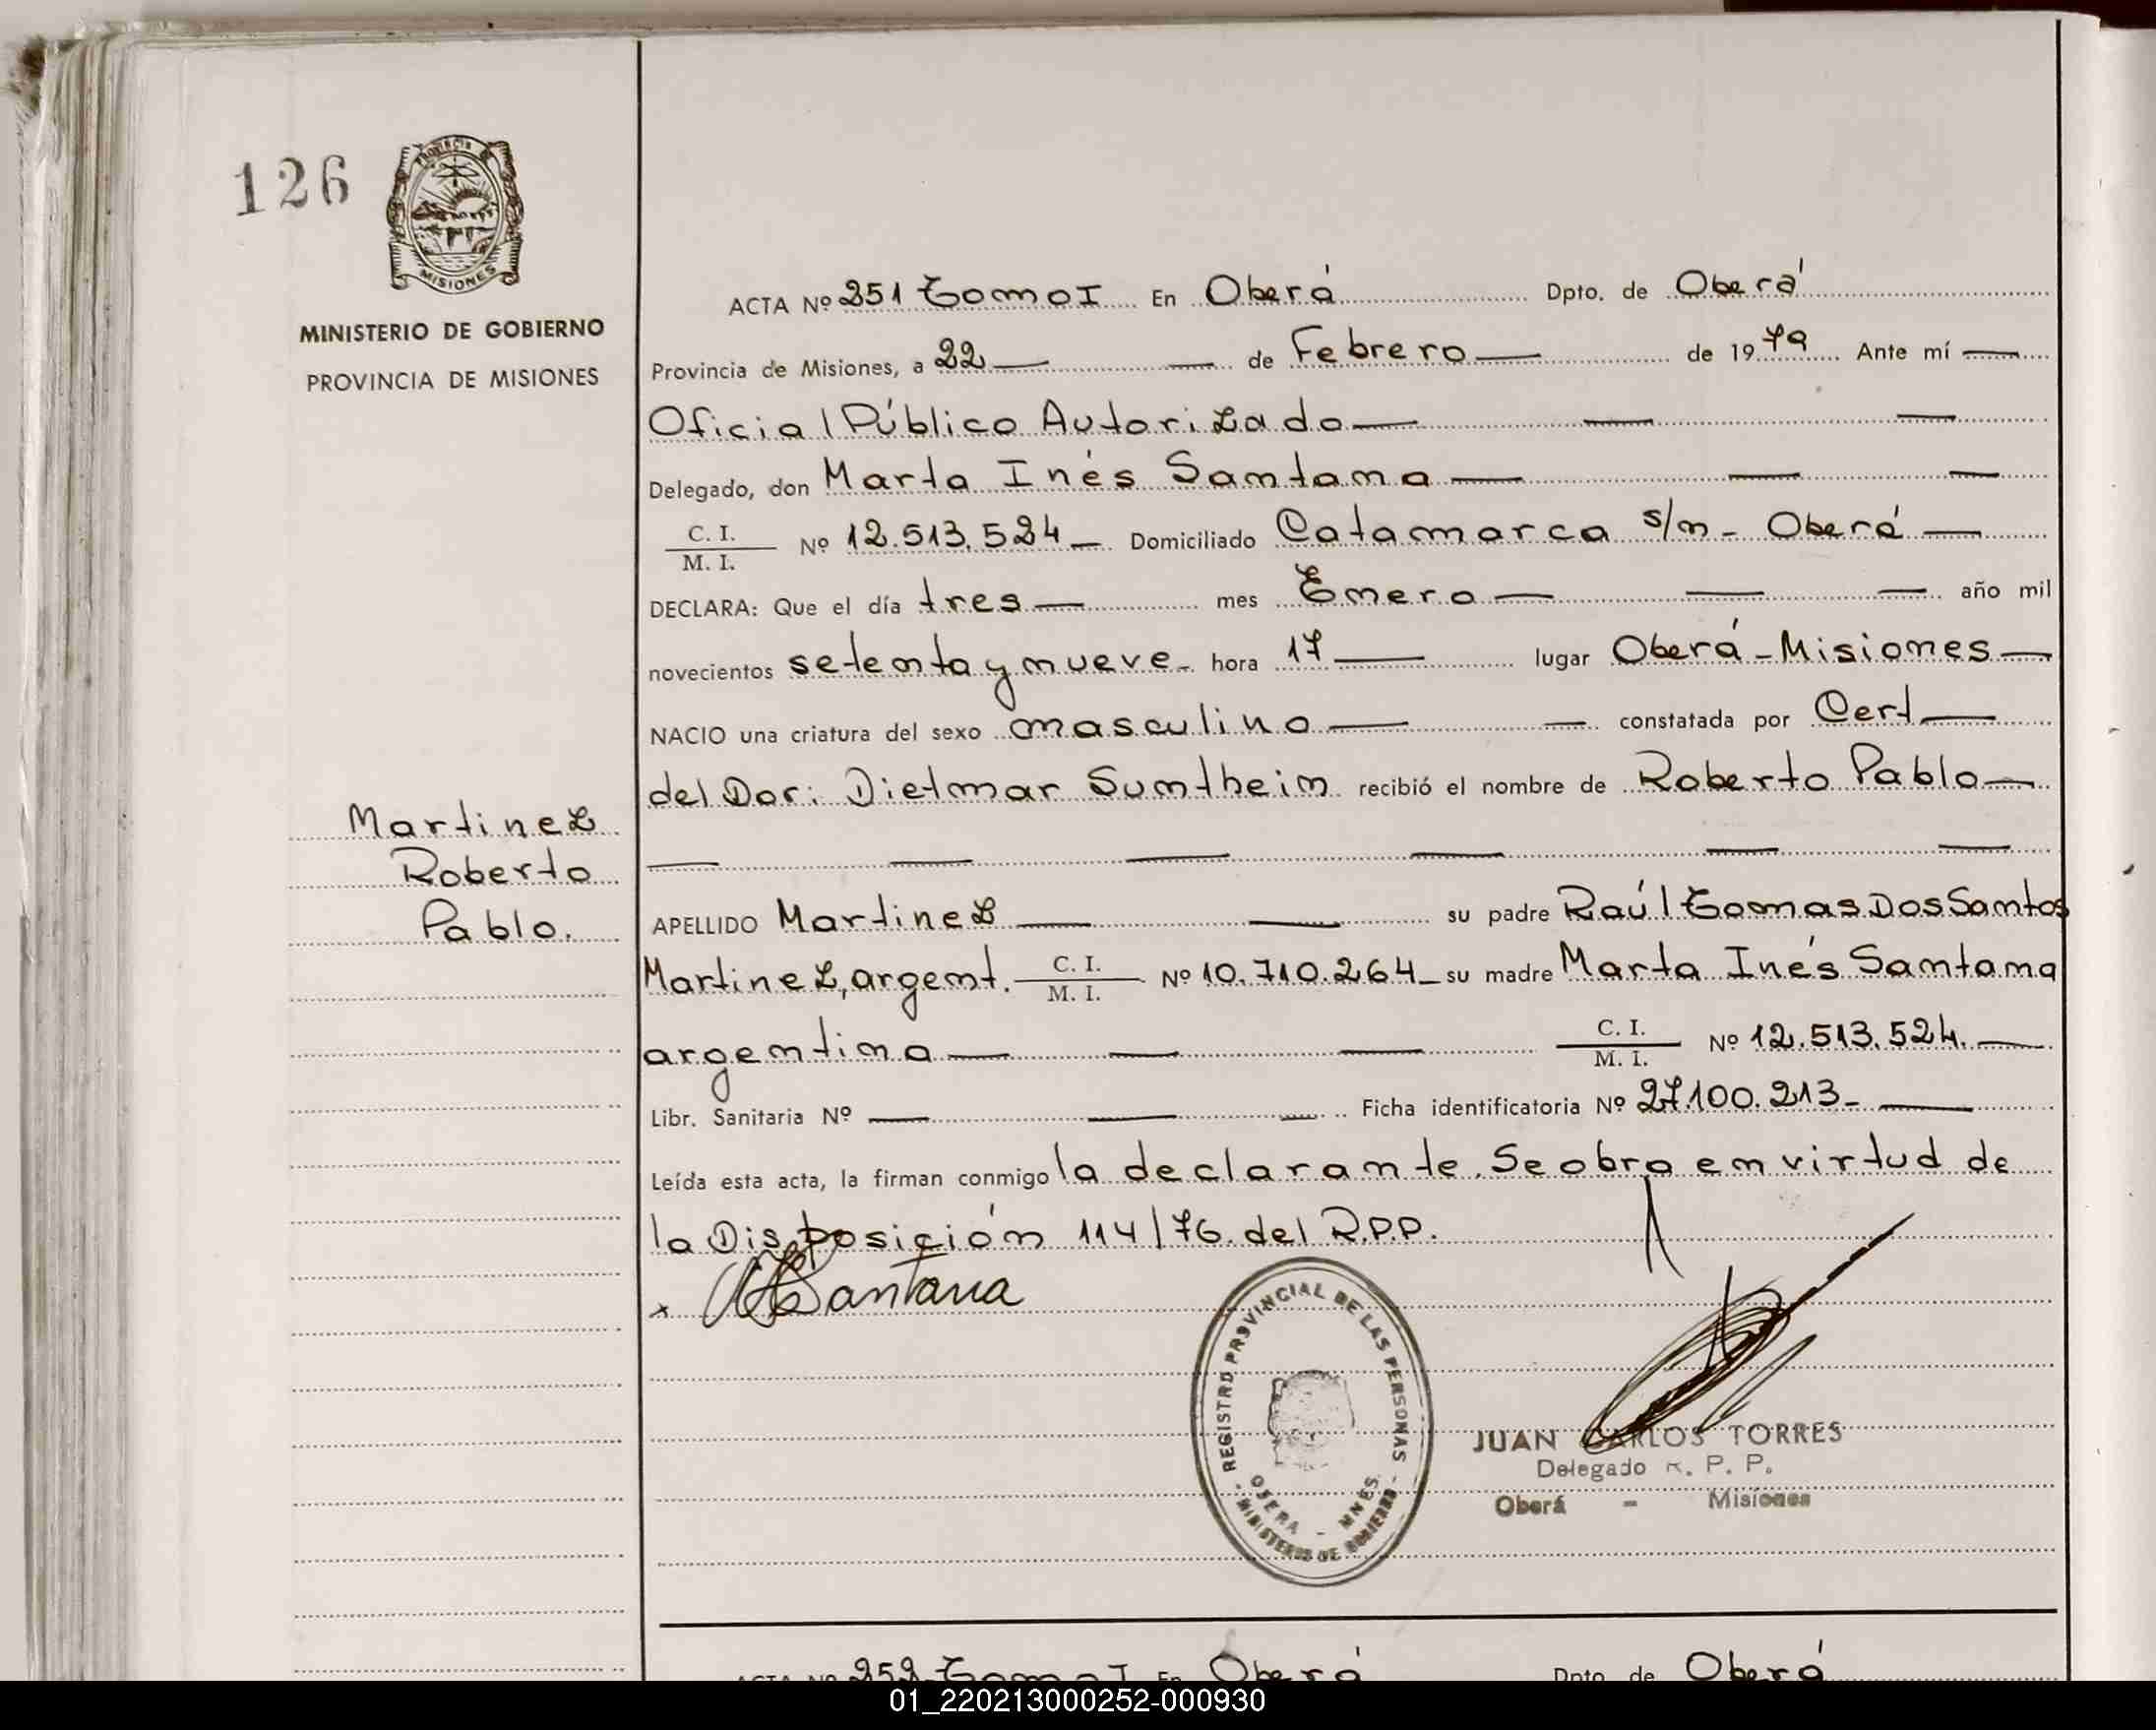 126
PROVINCIA DE
MISIONES
MINISTERIO DE GOBIERNO
PROVINCIA DE MISIONES
Martinez
Roberto
Pablo.
ACTA Nº 251 Tomo I En Oberá Dpto. de Oberá
Provincia de Misiones, a 22 — — de Febrero — de 1979 Ante mí —
Oficial Público Autorizado — — —
Delegado, don Marta Inés Santana — — —
C. I.
M. I. Nº 12.513.524 — Domiciliado Catamarca s/n - Oberá —
DECLARA: Que el día tres — mes Enero — — — año mil
novecientos setenta y nueve - hora 17 — lugar Oberá - Misiones —
NACIO una criatura del sexo masculino — — constatada por Cert —
del Dor: Dietmar Sumthein recibió el nombre de Roberto Pablo —
— — — — — —
APELLIDO Martinez — — su padre Raúl Tomas Dos Santos
Martinez, argent. C. I. M. I. Nº 10.710.264 - su madre Marta Inés Santana
argentina — — — C. I. M. I. Nº 12.513.524. —
Libr. Sanitaria Nº — — — Ficha identificatoria Nº 27.100.213 - —
Leída esta acta, la firman conmigo la declarante. Se obra en virtud de
la Disposición 114/76 del R.P.P.
x MSantana
REGISTRO PROVINCIAL DE LAS PERSONAS
OBERA - MNES
- MINISTERIO DE GOBIERNO -
JUAN CARLOS TORRES
Delegado R. P. P.
Oberá - Misiones
ACTA Nº 252 Tomo I En Oberá Dpto. de Oberá
01_220213000252-000930